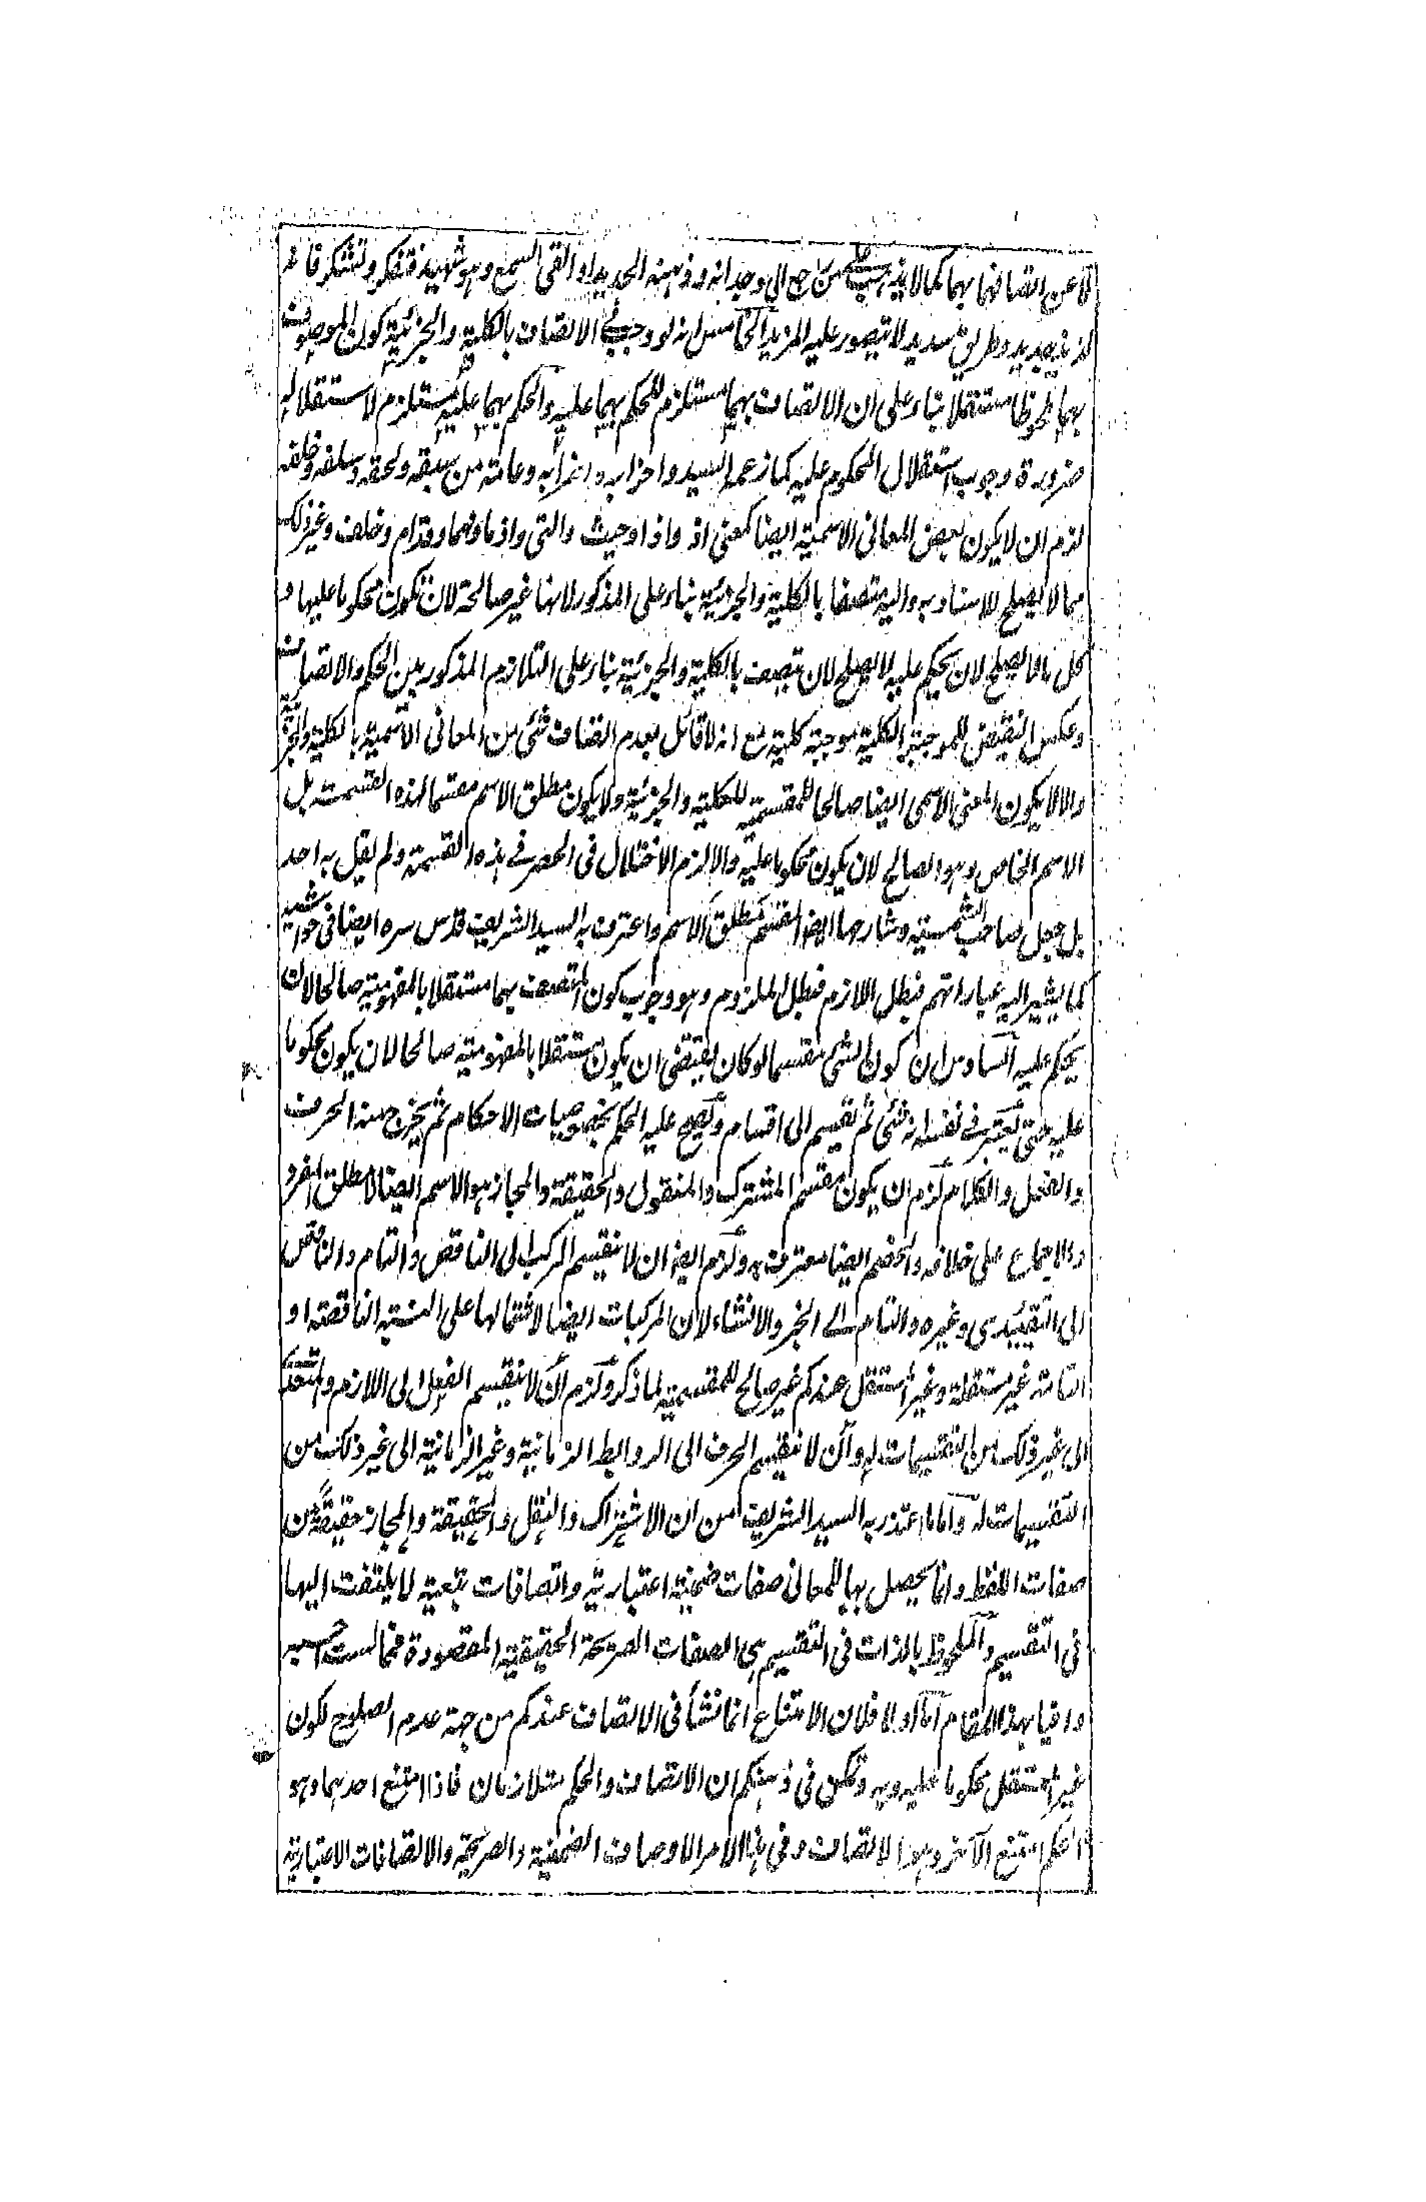 لا عن اتصافهما بهما كما لا يذهب على من راجع الى وجدانه وذهنه الحديد او القى السمع وهو شهيد فتفكر وتشكر فانه
لذيذ جديد وطريق سديد لا يتصور عليه المزيد الخامس انه لو وجب فى الاتصاف بالكلية والجزئية كون الموصوف
بهما ملحوظا مستقلا بناء على ان الاتصاف بهما مستلزم للحكم بهما عليه والحكم بهما عليه مستلزم لاستقلاله
ضرورة وجوب استقلال المحكوم عليه كما زعمه السيد واحزابه واغرابه وعامة من سبقه ولحقه وسلفه وخلفه
لزم ان لا يكون بعض المعانى الاسمية ايضا كمعنى اذ واذا وحيث والتى واذما ومهما وقدام وخلف وغير ذلك
مما لا يصلح للاسناد به واليه متصفا بالكلية والجزئية بناء على المذكور لانها غير صالحة لان تكون محكوما عليها و
كل ما لا يصلح لان يحكم عليه لا يصلح لان يتصف بالكلية والجزئية بناء على التلازم المذكور بين الحكم والاتصاف
وعكس النقيض للموجبة الكلية موجبة كلية مع انه لا قائل بعدم اتصاف شئ من المعانى الاسمية بالكلية والجزئية
والا لا يكون المعنى الاسمى ايضا صالحا للمقسمية للكلية والجزئية ولا يكون مطلق الاسم مقسما لهذه القسمة بل
الاسم الخاص وهو الصالح لان يكون محكوما عليه والا لزم الاختلال فى الحصر فى هذه القسمة ولم يقل به احد
بل جعل صاحب الشمسية وشارحها ايضا المقسم مطلق الاسم واعترف به السيد الشريف قدس سره ايضا فى حواشيه
كما يشير اليه عباراتهم فبطل اللازم فبطل الملزوم وهو وجوب كون المتصف بهما مستقلا بالمفهومية صالحا لان
يحكم عليه السادس ان كون الشئ مقسما لو كان يقتضى ان يكون مستقلا بالمفهومية صالحا لان يكون محكوما
عليه حتى يعتبر فى نفسه انه شئ ثم يقسم الى اقسام ويصح عليه الحكم بخصوصيات الاحكام ثم يخرج منه الحرف
والفعل والكلام لزم ان يكون مقسم المشترك والمنقول والحقيقة والمجاز هو الاسم ايضا لا مطلق المفرد
والاجماع على خلافه والخصم ايضا معترف به ولزم ايضا ان لا ينقسم المركب الى الناقص والتام والناقص
الى التقييدى وغيره والتام الى الخبر والانشاء لان المركبات ايضا لاشتمالها على النسبة الناقصة او
التامة غير مستقلة وغير المستقل عندكم غير صالح للمقسمية لما ذكر ولزم ان لا ينقسم الفعل الى اللازم والمتعدى
الى غير ذلك من التقسيمات له وان لا ينقسم الحرف الى الروابط الزمانية وغير الزمانية الى غير ذلك من
التقسيمات له واما ما اعتذر به السيد الشريف من ان الاشتراك والنقل والحقيقة والمجاز حقيقة من
صفات اللفظ وانما يحصل بها للمعانى صفات ضمنية اعتبارية واتصافات تبعية لا يلتفت اليها
فى التقسيم والملحوظ بالذات فى التقسيم هى الصفات الصريحة الحقيقية المقصودة فمما لست احسبه
وافيا بهذا المقام اما اولا فلان الامتناع انما نشأ فى الاتصاف عندكم من جهة عدم الصلوح لكون
غير المستقل محكوما عليه وبه وتمكن فى ذهنكم ان الاتصاف والحكم متلازمان فاذا امتنع احدهما وهو
الحكم امتنع الآخر وهو الاتصاف وفى هذا الامر الاوصاف الضمنية والصريحة والاتصافات الاعتبارية